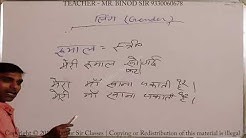 TEACHER - MR. BINOD SIR 9330060678
लिंग (Gender)
रूमाल = स्त्री०
मेरी रूमाल
मेरा माँ खाना पकाता है।
मेरी माँ खाना पकाती है।
Sir Classes | Copying or Redistribution of this material is illegal